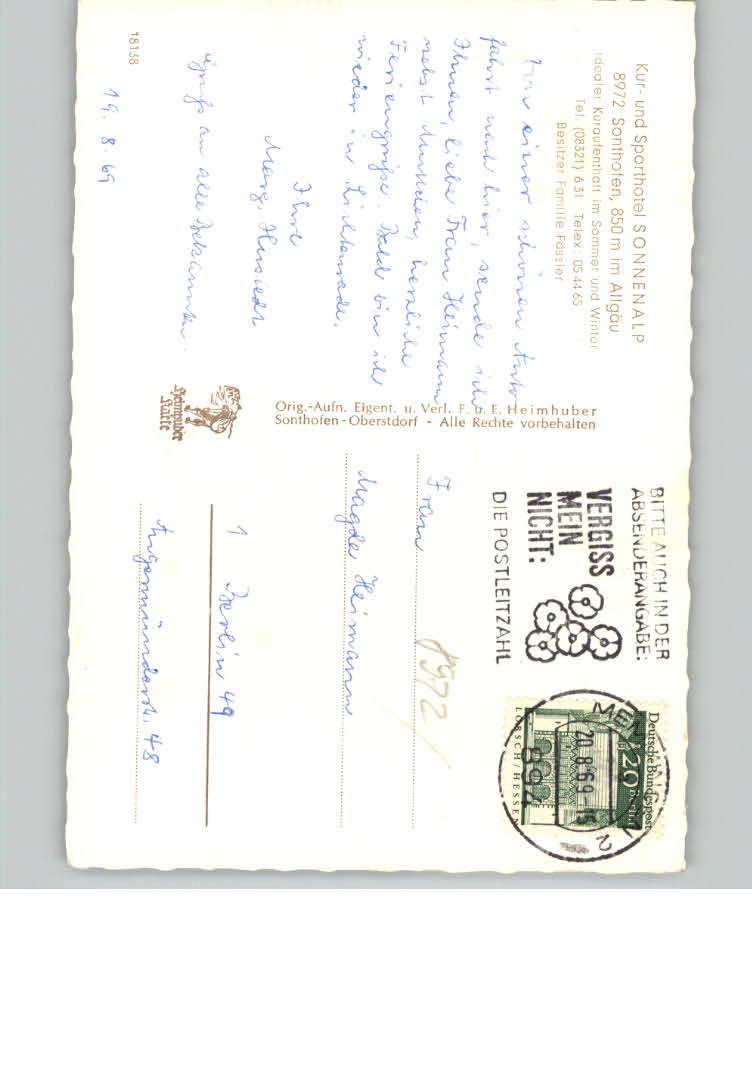 Kur- und Sporthotel SONNENALP
8972 Sonthofen, 850 m im Allgäu
Idealer Kuraufenthalt im Sommer und Winter
Tel. (08321) 6 31 Telex: 05 44 65
Besitzer Familie Fässler
Von einer schönen Auto
fahrt nach hier, sende ich
Ihnen, liebe Frau Heimann
nebst herzliche
Feriengrüße. Bald bin ich
wieder in Lichtenrade.
Ihre
Marg.
Gruß an alle Bekannten.
19. 8. 69
18138
Orig.-Aufn. Eigent. u. Verl. F. u. E. Heimhuber
Sonthofen-Oberstdorf - Alle Rechte vorbehalten
Heimhuber
Karte
BITTE AUCH IN DER
ABSENDERANGABE:
VERGISS
MEIN
NICHT:
DIE POSTLEITZAHL
Deutsche Bundespost
20
BERLIN
LORSCH/HESSEN
MEMMINGEN
20.8.69-15
2
894
8972
Frau
Magda Heimann
1 Berlin 49
Angermünderstr. 48